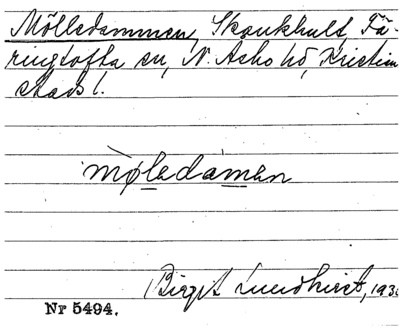 Mölledammen, Skånkhult, Fä-
ringtofta sn, N. Åsbo hd, Kristian
stads l.
møledamen
Birgit Lundkvist, 193
Nr 5494.